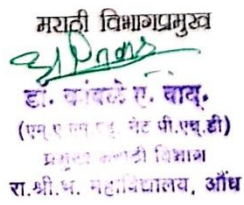 मराठी विभागप्रमुख
डॉ. कांबळे ए. वाय.
(एम.ए.एम.एड् नेट पी.एच.डी)
प्रमुख मराठी विभाग
रा.श्री.भ. महाविद्यालय, औंध